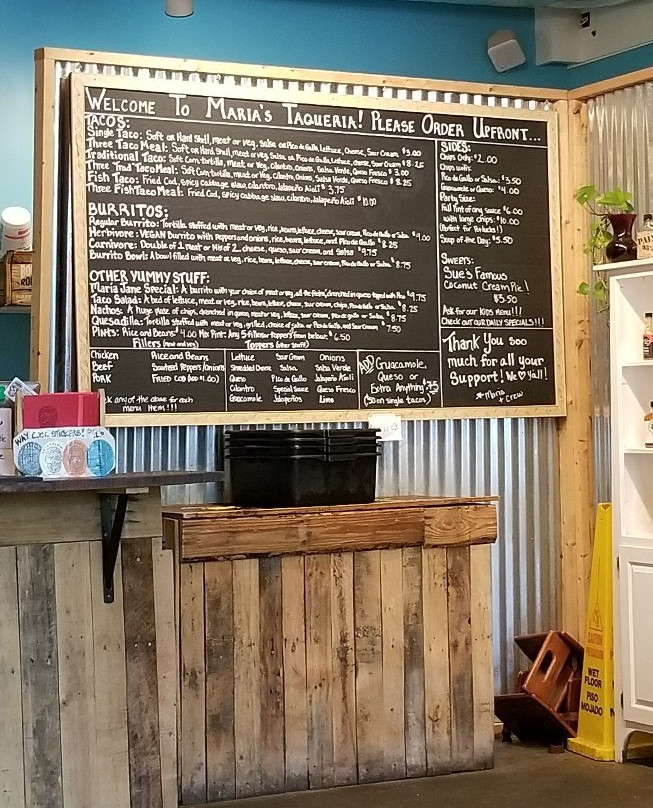 WELCOME TO MARIA'S TAQUERIA! PLEASE ORDER UPFRONT...
TACOS:
Single Taco: Soft or Hard Shell, meat or veg, salsa or Pico de Gallo, Lettuce, Cheese, Sour Cream $3.00
Three Taco Meal: Soft or Hard Shell, meat or veg, Salsa or Pico de Gallo, Lettuce, cheese, Sour Cream $8.25
Traditional Taco: Soft Corn tortilla, meat or Veg, Cilantro, Onions, Salsa Verde, Queso Fresco $3.00
Three 'Trad' Taco Meal: Soft Corn tortilla, meat or veg, Cilantro, Onions, Salsa Verde, Queso Fresco $8.25
Fish Taco: Fried Cod, Spicy cabbage slaw, cilantro, Jalapeño Aioli $3.75
Three Fish Taco Meal: Fried Cod, Spicy cabbage slaw, cilantro, Jalapeño Aioli $10.00
BURRITOS:
Regular Burrito: Tortilla stuffed with meat or veg, rice, beans, lettuce, cheese, sour cream, Pico de Gallo or Salsa $9.00
Herbivore: VEGAN burrito with peppers and onions, rice, beans, lettuce, and Pico de Gallo $8.25
Carnivore: Double of 1 meat or Mix of 2, cheese, queso, sour cream, and Salsa $9.75
Burrito Bowl: A bowl filled with meat or veg, rice, beans, lettuce, cheese, sour cream, Pico de Gallo or Salsa $8.75
OTHER YUMMY STUFF:
Maria Jane Special: A burrito with your choice of meat or veg, all the fixins, drenched in queso topped with Pico $9.75
Taco Salad: A bed of lettuce, meat or veg, rice, beans, lettuce, cheese, sour cream, chips, Pico de Gallo or Salsa $8.25
Nachos: A huge plate of chips, drenched in queso, meat or veg, lettuce, sour cream, Pico de gallo or Salsa $8.75
Quesadilla: Tortilla stuffed with meat or veg, grilled, choice of salsa or Pico de Gallo, and Sour Cream $7.50
PINTS: Rice and Beans: $4.00 Mix Pint: Any 5 fillers or toppers from below: $6.50
Fillers (meat and veg)
Chicken Rice and Beans
Beef Sauteed Peppers/Onions
Pork Fried Cod (ADD $1.00)
Pick any of the above for each
menu Item!!!
Toppers (other stuff)
Lettuce Sour Cream Onions
Shredded Cheese Salsa Salsa Verde
Queso Pico de Gallo Jalapeño Aioli
Cilantro Special Sauce Queso Fresco
Guacamole Jalapeños Lime
ADD Guacamole,
Queso or
Extra Anything! .75
(.50 on single tacos)
SIDES:
Chips Only: $2.00
Chips with:
Pico de Gallo or Salsa: $3.50
Guacamole or Queso: $4.00
Party Size:
Full Pint of any sauce $6.00
with large chips $10.00
(Perfect for Potlucks!)
Soup of the Day: $5.50
SWEETS:
Sue's Famous
Coconut Cream Pie!
$3.50
Ask for our KIDS MENU!!!
Check out our DAILY SPECIALS!!!
Thank You soo
much for all your
Support! We ♡ yall!
Maria
+ Crew
WAY COOL STICKERS!
CAUTION
WET
FLOOR
PISO
MOJADO